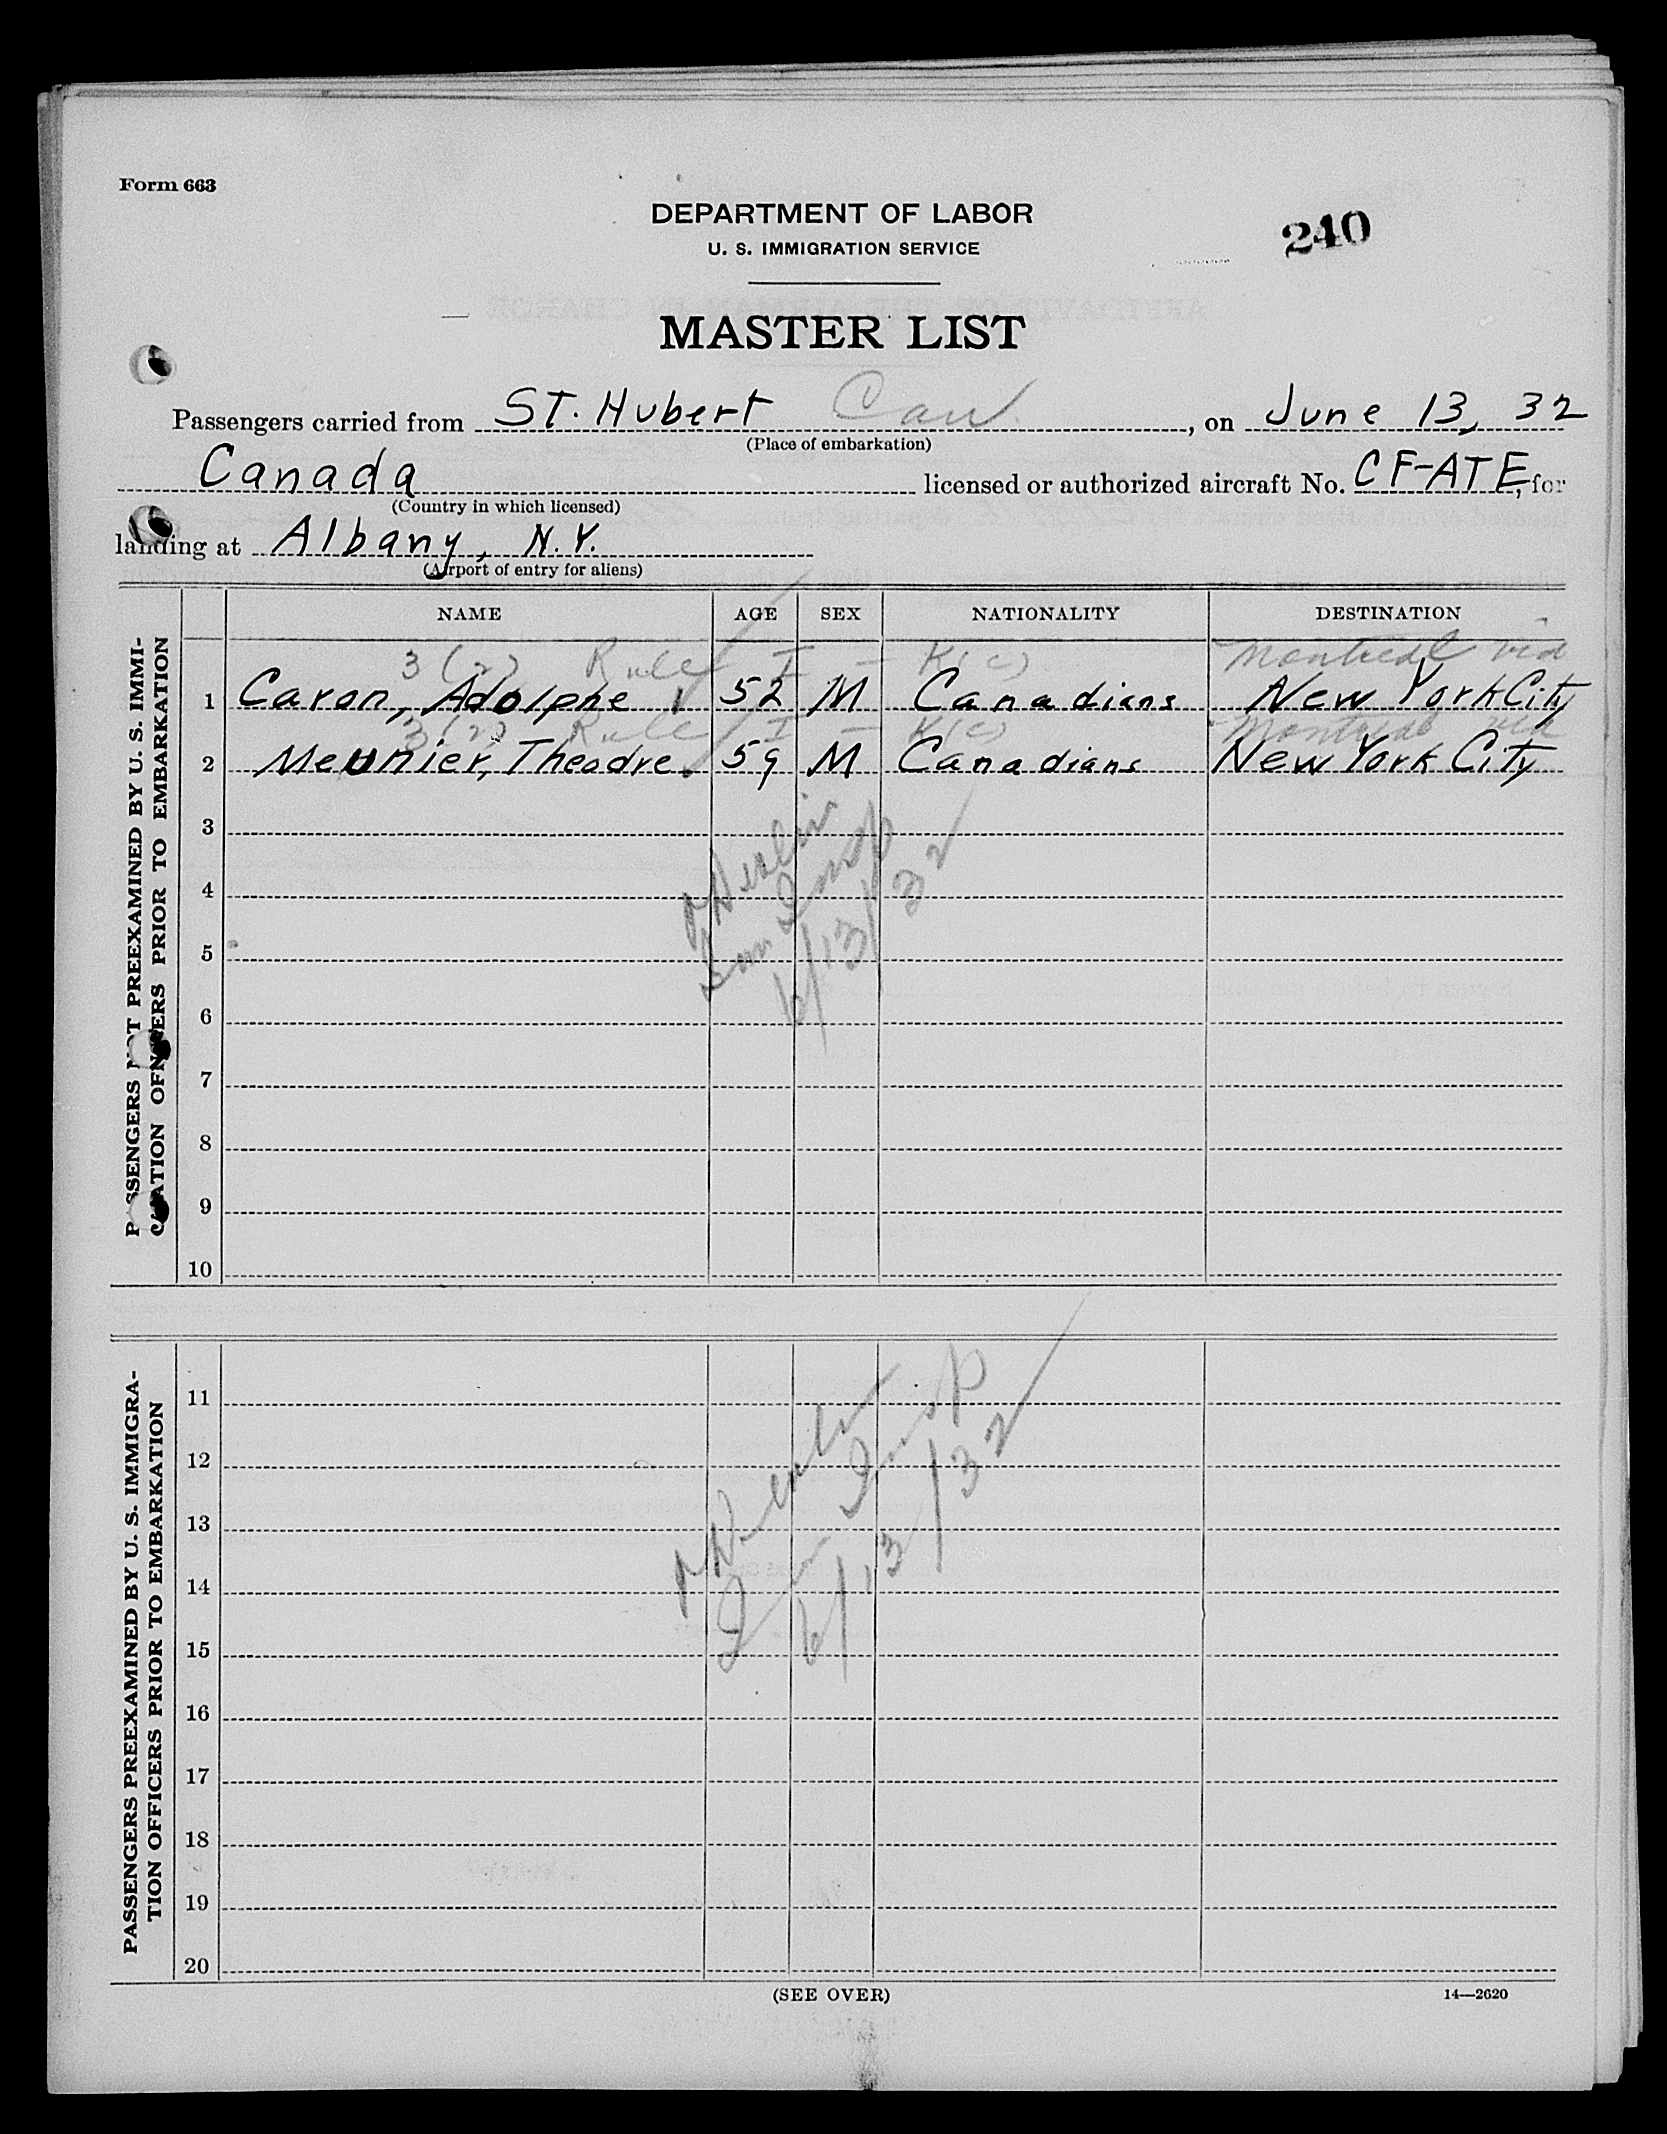 Form 663
DEPARTMENT OF LABOR
U. S. IMMIGRATION SERVICE
240
MASTER LIST
Passengers carried from ST. Hubert Can. , on June 13, 32
(Place of embarkation)
Canada licensed or authorized aircraft No. CF-ATE, for
(Country in which licensed)
landing at Albany, N.Y.
(Airport of entry for aliens)
NAME AGE SEX NATIONALITY DESTINATION
3(2) Rule I - K(c) Montreal via
1 Caron, Adolphe 52 M Canadians New York City
3(2) Rule I - K(c) Montreal via
2 Meunier, Theodre. 59 M Canadians New York City
3
4
5
6
7
8
9
10
PASSENGERS NOT PREEXAMINED BY U. S. IMMI-
GRATION OFFICERS PRIOR TO EMBARKATION
Imm Insp
6/13/32
11
12
13
14
15
16
17
18
19
20
PASSENGERS PREEXAMINED BY U. S. IMMIGRA-
TION OFFICERS PRIOR TO EMBARKATION
Imm Insp
6/13/32
(SEE OVER)
14—2620